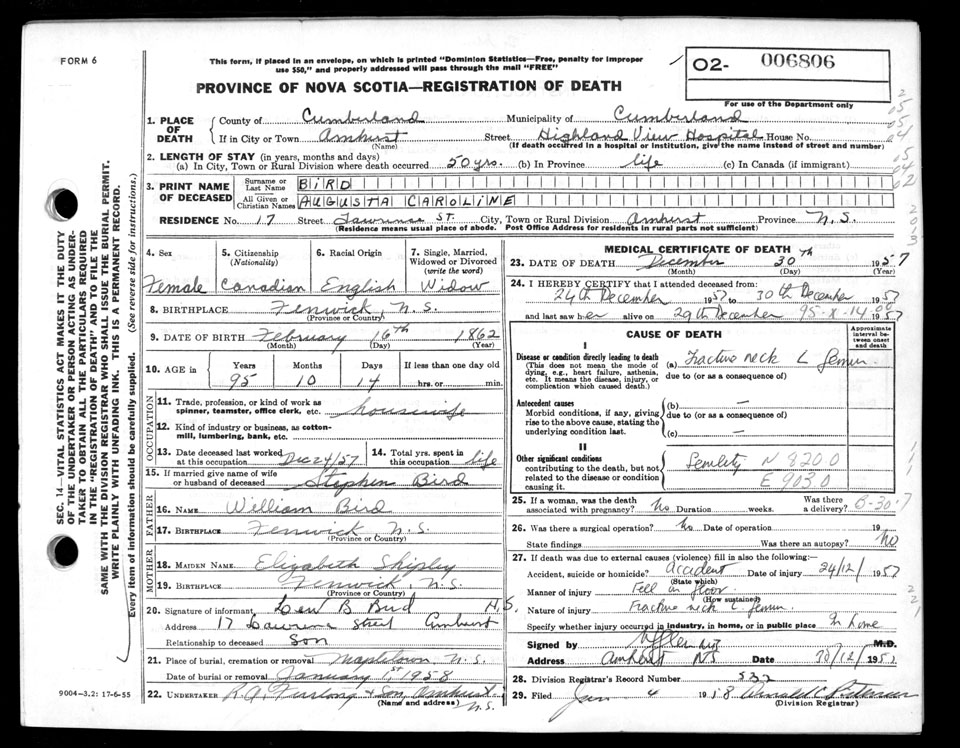 FORM 6
This form, if placed in an envelope, on which is printed "Dominion Statistics—Free, penalty for improper
use $50," and properly addressed will pass through the mail "FREE"
O2- 006806
For use of the Department only
PROVINCE OF NOVA SCOTIA—REGISTRATION OF DEATH
1. PLACE OF DEATH County of Cumberland Municipality of Cumberland
If in City or Town Amherst Street Highland View Hospital House No.
(Name) (If death occurred in a hospital or institution, give the name instead of street and number)
2. LENGTH OF STAY (in years, months and days)
(a) In City, Town or Rural Division where death occurred 50 yrs. (b) In Province life (c) In Canada (if immigrant)
3. PRINT NAME OF DECEASED Surname or Last Name BIRD
All Given or Christian Names AUGUSTA CAROLINE
RESIDENCE No. 17 Street Lawrence ST. City, Town or Rural Division Amherst Province N.S.
(Residence means usual place of abode. Post Office Address for residents in rural parts not sufficient)
SEC. 14—VITAL STATISTICS ACT MAKES IT THE DUTY
OF THE UNDERTAKER OR PERSON ACTING AS UNDER-
TAKER TO OBTAIN ALL THE PARTICULARS REQUIRED
IN THE "REGISTRATION OF DEATH" AND TO FILE THE
SAME WITH THE DIVISION REGISTRAR WHO SHALL ISSUE THE BURIAL PERMIT.
WRITE PLAINLY WITH UNFADING INK. THIS IS A PERMANENT RECORD.
Every item of information should be carefully supplied. (See reverse side for instructions.)
4. Sex 5. Citizenship (Nationality) 6. Racial Origin 7. Single, Married, Widowed or Divorced (write the word)
Female Canadian English Widow
8. BIRTHPLACE Fenwick N.S.
(Province or Country)
9. DATE OF BIRTH February 16th 1862
(Month) (Day) (Year)
10. AGE in Years Months Days If less than one day old
95 10 14 hrs. or min.
OCCUPATION
11. Trade, profession, or kind of work as
spinner, teamster, office clerk, etc. housewife
12. Kind of industry or business, as cotton-
mill, lumbering, bank, etc.
13. Date deceased last worked at this occupation Dec 24/57 14. Total yrs. spent in this occupation life
15. If married give name of wife
or husband of deceased Stephen Bird
FATHER
16. NAME William Bird
17. BIRTHPLACE Fenwick N.S.
(Province or Country)
MOTHER
18. MAIDEN NAME Elizabeth Shipley
19. BIRTHPLACE Fenwick, N.S.
(Province or Country)
20. Signature of informant Lew B Bird
Address 17 Lawrence Street Amherst N.S.
Relationship to deceased Son
21. Place of burial, cremation or removal Mapletown, N.S.
Date of burial or removal January 1st, 1958
22. UNDERTAKER R.A. Furlong & Son, Amherst, N.S.
(Name and address)
9004-3.2: 17-6-55
MEDICAL CERTIFICATE OF DEATH
23. DATE OF DEATH December 30th 1957
(Month) (Day) (Year)
24. I HEREBY CERTIFY that I attended deceased from:
24th December 1957 to 30th December 1957
and last saw her alive on 29th December 1957
95-X-14
CAUSE OF DEATH
Approximate interval between onset and death
I
Disease or condition directly leading to death (a) Fractive neck L femur
(This does not mean the mode of dying, e.g., heart failure, asthenia, etc. It means the disease, injury, or complication which caused death.)
due to (or as a consequence of)
Antecedent causes (b) —
Morbid conditions, if any, giving rise to the above cause, stating the underlying condition last.
due to (or as a consequence of)
(c) —
II
Other significant conditions Senility N 820 0
contributing to the death, but not related to the disease or condition causing it. E 903 0
25. If a woman, was the death associated with pregnancy? No Duration weeks. Was there a delivery?
26. Was there a surgical operation? No Date of operation 19
State findings Was there an autopsy? No
27. If death was due to external causes (violence) fill in also the following:—
Accident, suicide or homicide? Accident Date of injury 24/12/ 1957
(State which)
Manner of injury Fell on floor
(How sustained)
Nature of injury Fractive neck L. femur.
Specify whether injury occurred in industry, in home, or in public place In home
Signed by M.D.
Address Amherst NS Date 30/12/ 1957
28. Division Registrar's Record Number 532
29. Filed Jan 4 1958
(Division Registrar)